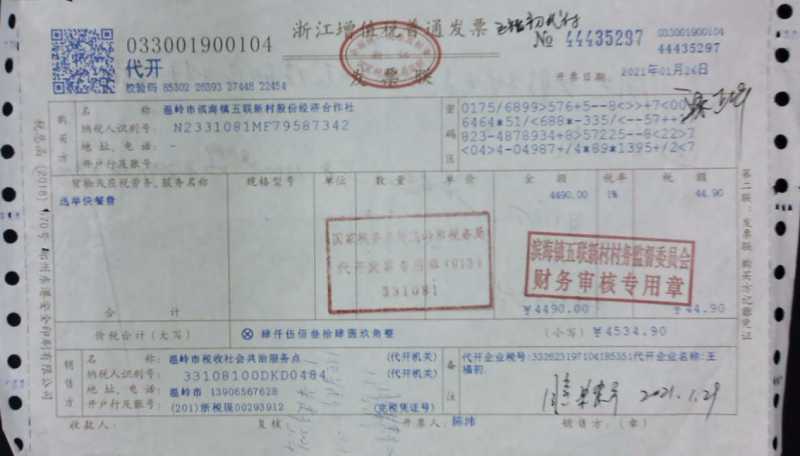 浙江增值税普通发票
033001900104
No 44435297
033001900104
44435297
代开
发票联
校验码 85302 26393 27448 22454
开票日期:
2021年01月26日
购买方
名 称:
温岭市滨海镇五联新村股份经济合作社
纳税人识别号:
N2331081MF79587342
地 址、电 话:
-
开户行及账号:
密码区
0175/6899>576+5--8<>>+7<00
6464*51/<688*-335/<--57++
823-4878934+8>57225--8<22>7
<04>4-04987+/4*89*1395+/2<7
货物或应税劳务、服务名称
规格型号
单位
数 量
单 价
金 额
税率
税 额
选举快餐费
4490.00
1%
44.90
代开发票专用章(013)
331081
滨海镇五联新村村务监督委员会
财务审核专用章
合 计
¥4490.00
¥44.90
价税合计(大写)
肆仟伍佰叁拾肆圆玖角整
(小写)
¥4534.90
销售方
名 称:
温岭市税收社会共治服务点
(代开机关)
纳税人识别号:
33108100DKD0484
(代开机关)
地 址、电 话:
温岭市 13906567628
开户行及账号:
(201)浙税现00293912
(完税凭证号)
备注
代开企业税号:332623197104185351代开企业名称:王
福初
2021.1.29
收款人:
复核:
开票人:
陈炜
销售方:(章)
第二联:发票联 购买方记账凭证